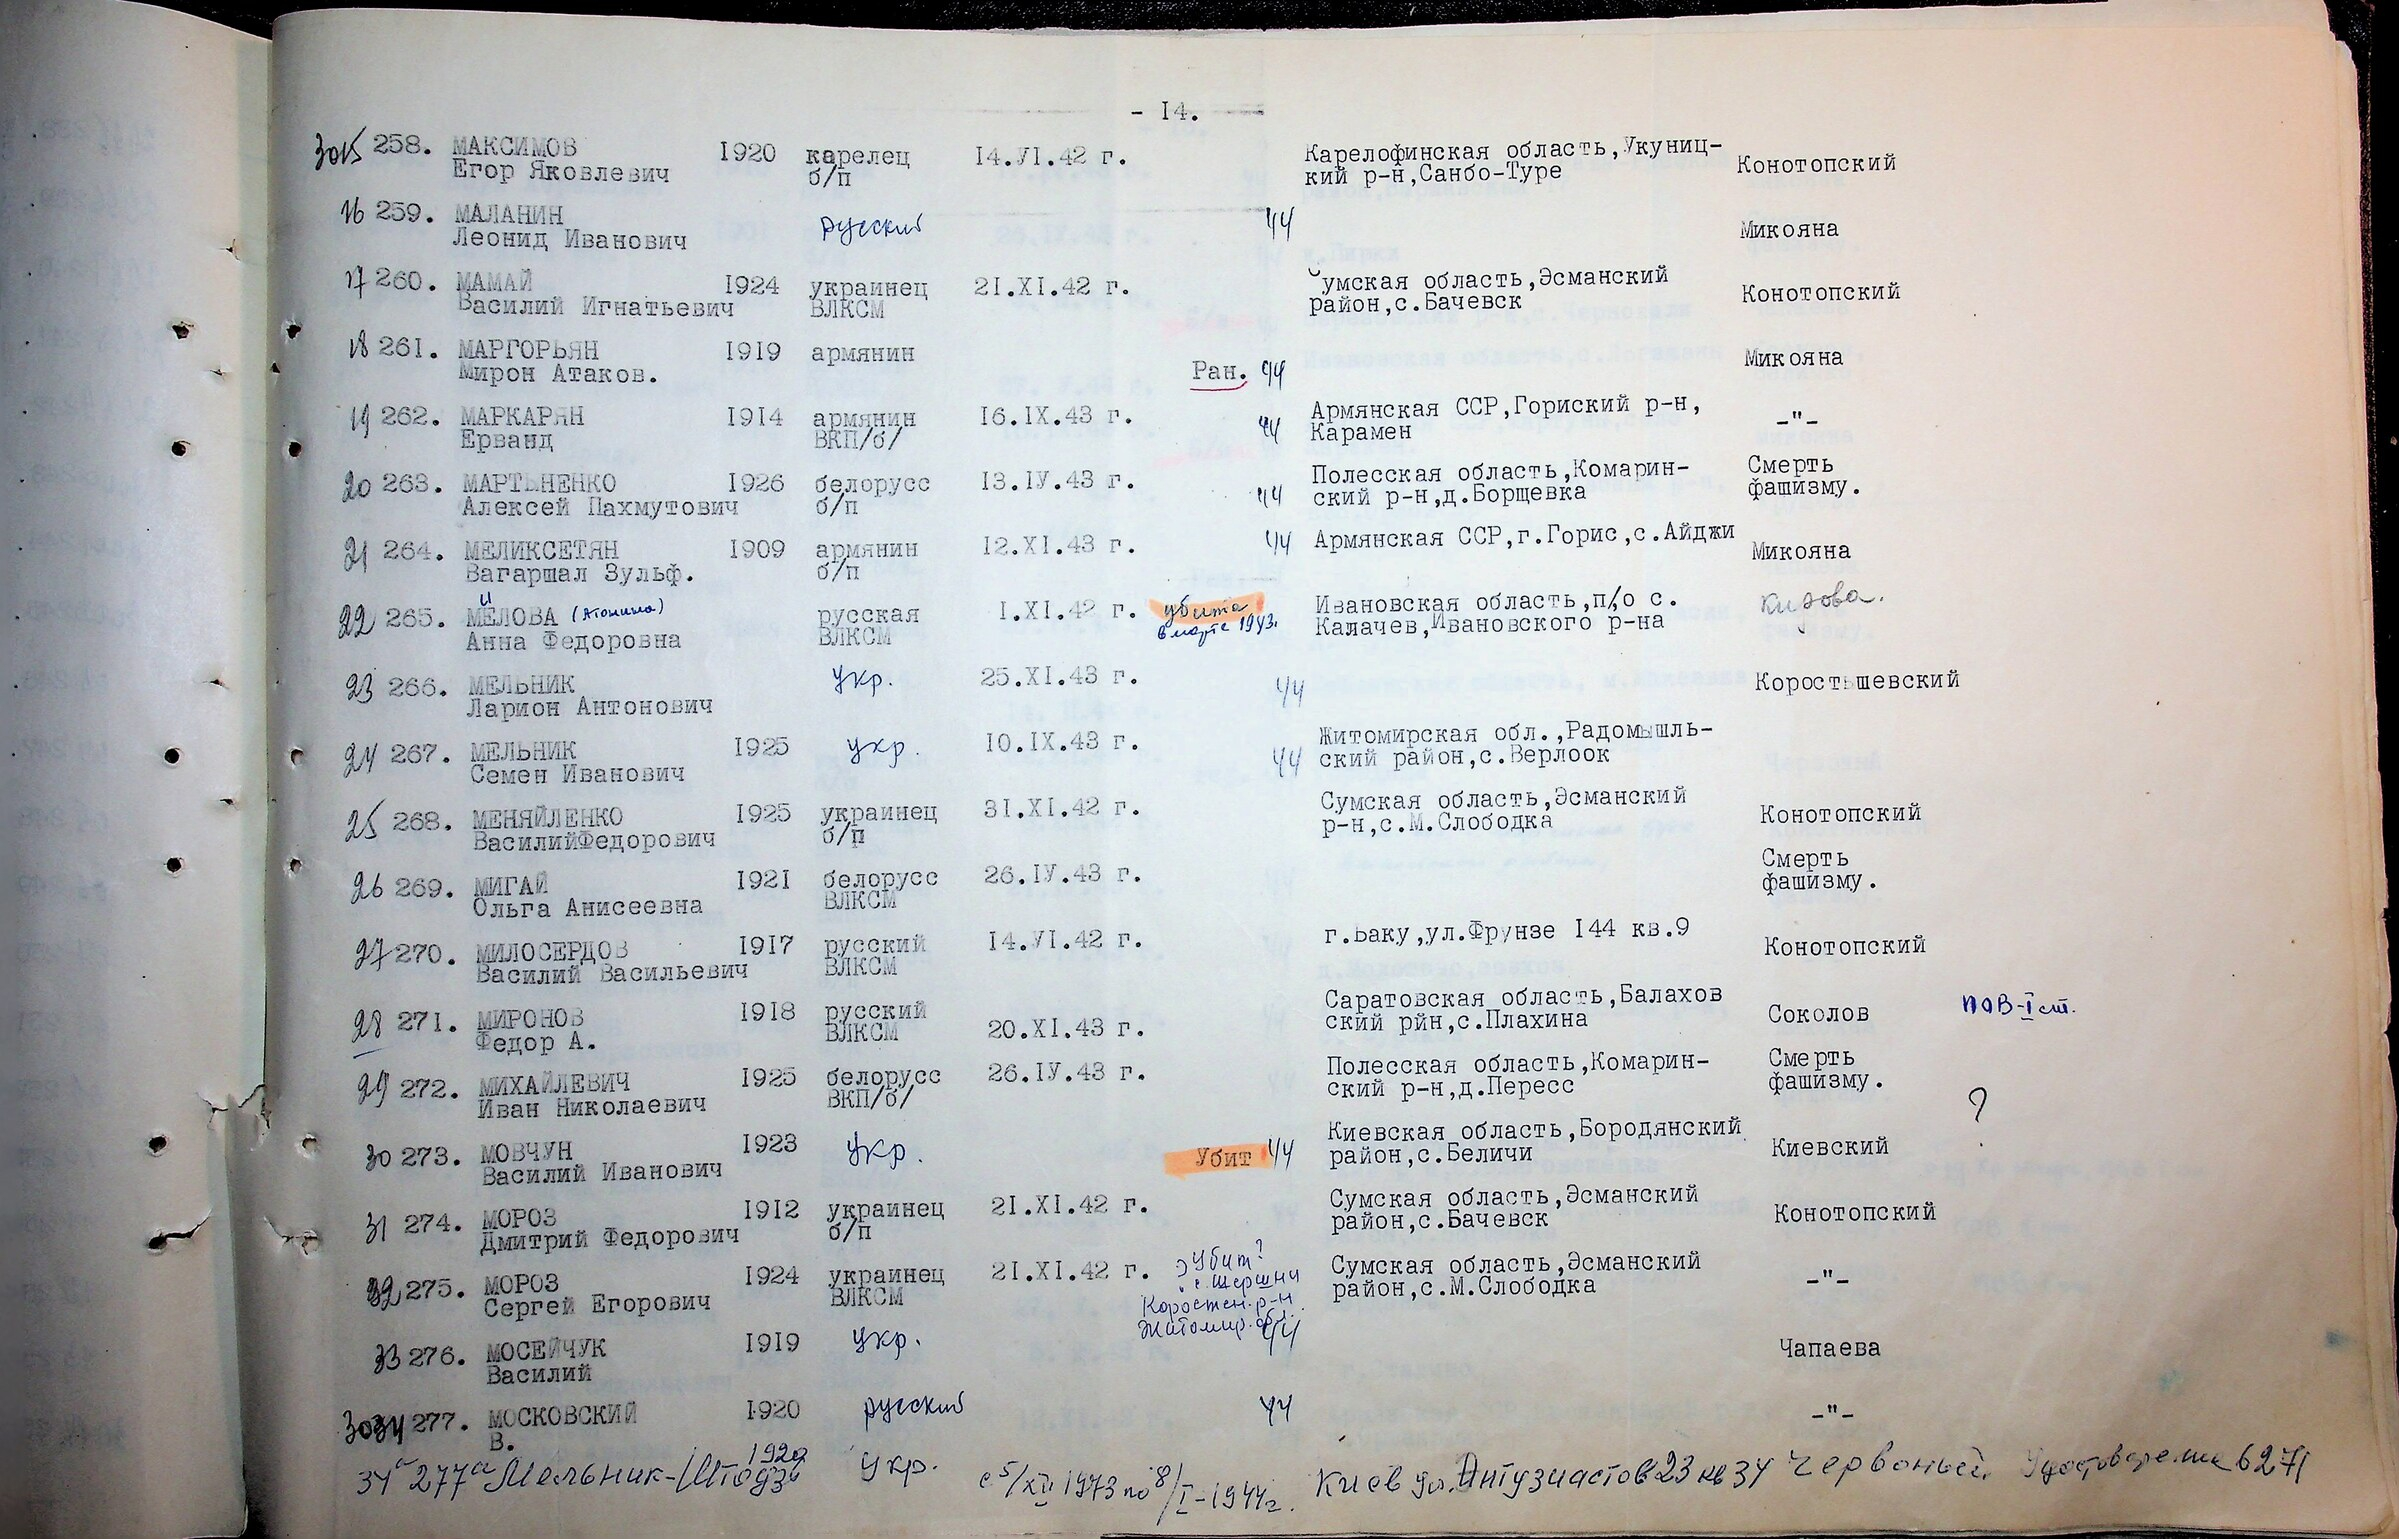 - I4.
3015 258. МАКСИМОВ I920 карелец I4.УI.42 г. Карелофинская область,Укуниц-
Егор Яковлевич б/п кий р-н,Санбо-Туре Конотопский
16 259. МАЛАНИН русский 44 Микояна
Леонид Иванович
17 260. МАМАЙ I924 украинец 2I.XI.42 г. Сумская область,Эсманский Конотопский
Василий Игнатьевич ВЛКСМ район,с.Бачевск
18 26I. МАРГОРЬЯН I9I9 армянин Микояна
Мирон Атаков. Ран. 44
19 262. МАРКАРЯН I9I4 армянин I6.IX.43 г. 44 Армянская ССР,Гориский р-н, -"-
Ерванд ВКП/б/ Карамен
20 263. МАРТЫНЕНКО I926 белорусс I3.IУ.43 г. Полесская область,Комарин- Смерть
Алексей Пахмутович б/п 44 ский р-н,д.Борщевка фашизму.
21 264. МЕЛИКСЕТЯН I909 армянин I2.XI.43 г. 44 Армянская ССР,г.Горис,с.Айджи Микояна
Вагаршал Зульф. б/п
и
22 265. МЕЛОВА (Атонина) русская I.XI.42 г. убита Ивановская область,п/о с. Кирова.
Анна Федоровна ВЛКСМ в марте 1943. Калачев,Ивановского р-на
23 266. МЕЛЬНИК укр. 25.XI.43 г. 44 Коростышевский
Ларион Антонович
24 267. МЕЛЬНИК I925 укр. I0.IX.43 г. Житомирская обл.,Радомышль-
Семен Иванович 44 ский район,с.Верлоок
25 268. МЕНЯЙЛЕНКО I925 украинец 3I.XI.42 г. Сумская область,Эсманский Конотопский
ВасилийФедорович б/п р-н,с.М.Слободка
26 269. МИГАЙ I92I белорусс 26.IУ.43 г. Смерть
Ольга Анисеевна ВЛКСМ фашизму.
27 270. МИЛОСЕРДОВ I9I7 русский I4.УI.42 г. г.Баку,ул.Фрунзе I44 кв.9 Конотопский
Василий Васильевич ВЛКСМ
28 27I. МИРОНОВ I9I8 русский 20.XI.43 г. Саратовская область,Балахов Соколов ПОВ-I ст.
Федор А. ВЛКСМ ский рйн,с.Плахина
29 272. МИХАЙЛЕВИЧ I925 белорусс 26.IУ.43 г. Полесская область,Комарин- Смерть
Иван Николаевич ВКП/б/ ский р-н,д.Пересс фашизму.
30 273. МОВЧУН I923 укр. Убит 44 Киевская область,Бородянский Киевский ?
Василий Иванович район,с.Беличи
31 274. МОРОЗ I9I2 украинец 2I.XI.42 г. Сумская область,Эсманский Конотопский
Дмитрий Федорович б/п район,с.Бачевск
32 275. МОРОЗ I924 украинец 2I.XI.42 г. Убит? Сумская область,Эсманский -"-
Сергей Егорович ВЛКСМ с. Шершни район,с.М.Слободка
Коростен. р-н
Житомир. обл.
33 276. МОСЕЙЧУК I9I9 укр. 44 Чапаева
Василий
3034 277. МОСКОВСКИЙ I920 русский 44 -"-
В.
34а 277а Мельник- 1920 укр. с 5/XII 1943 по 8/I-1944г. Киев ул. Энтузиастов 23 кв 34 Червоный. Удостоверение 6271